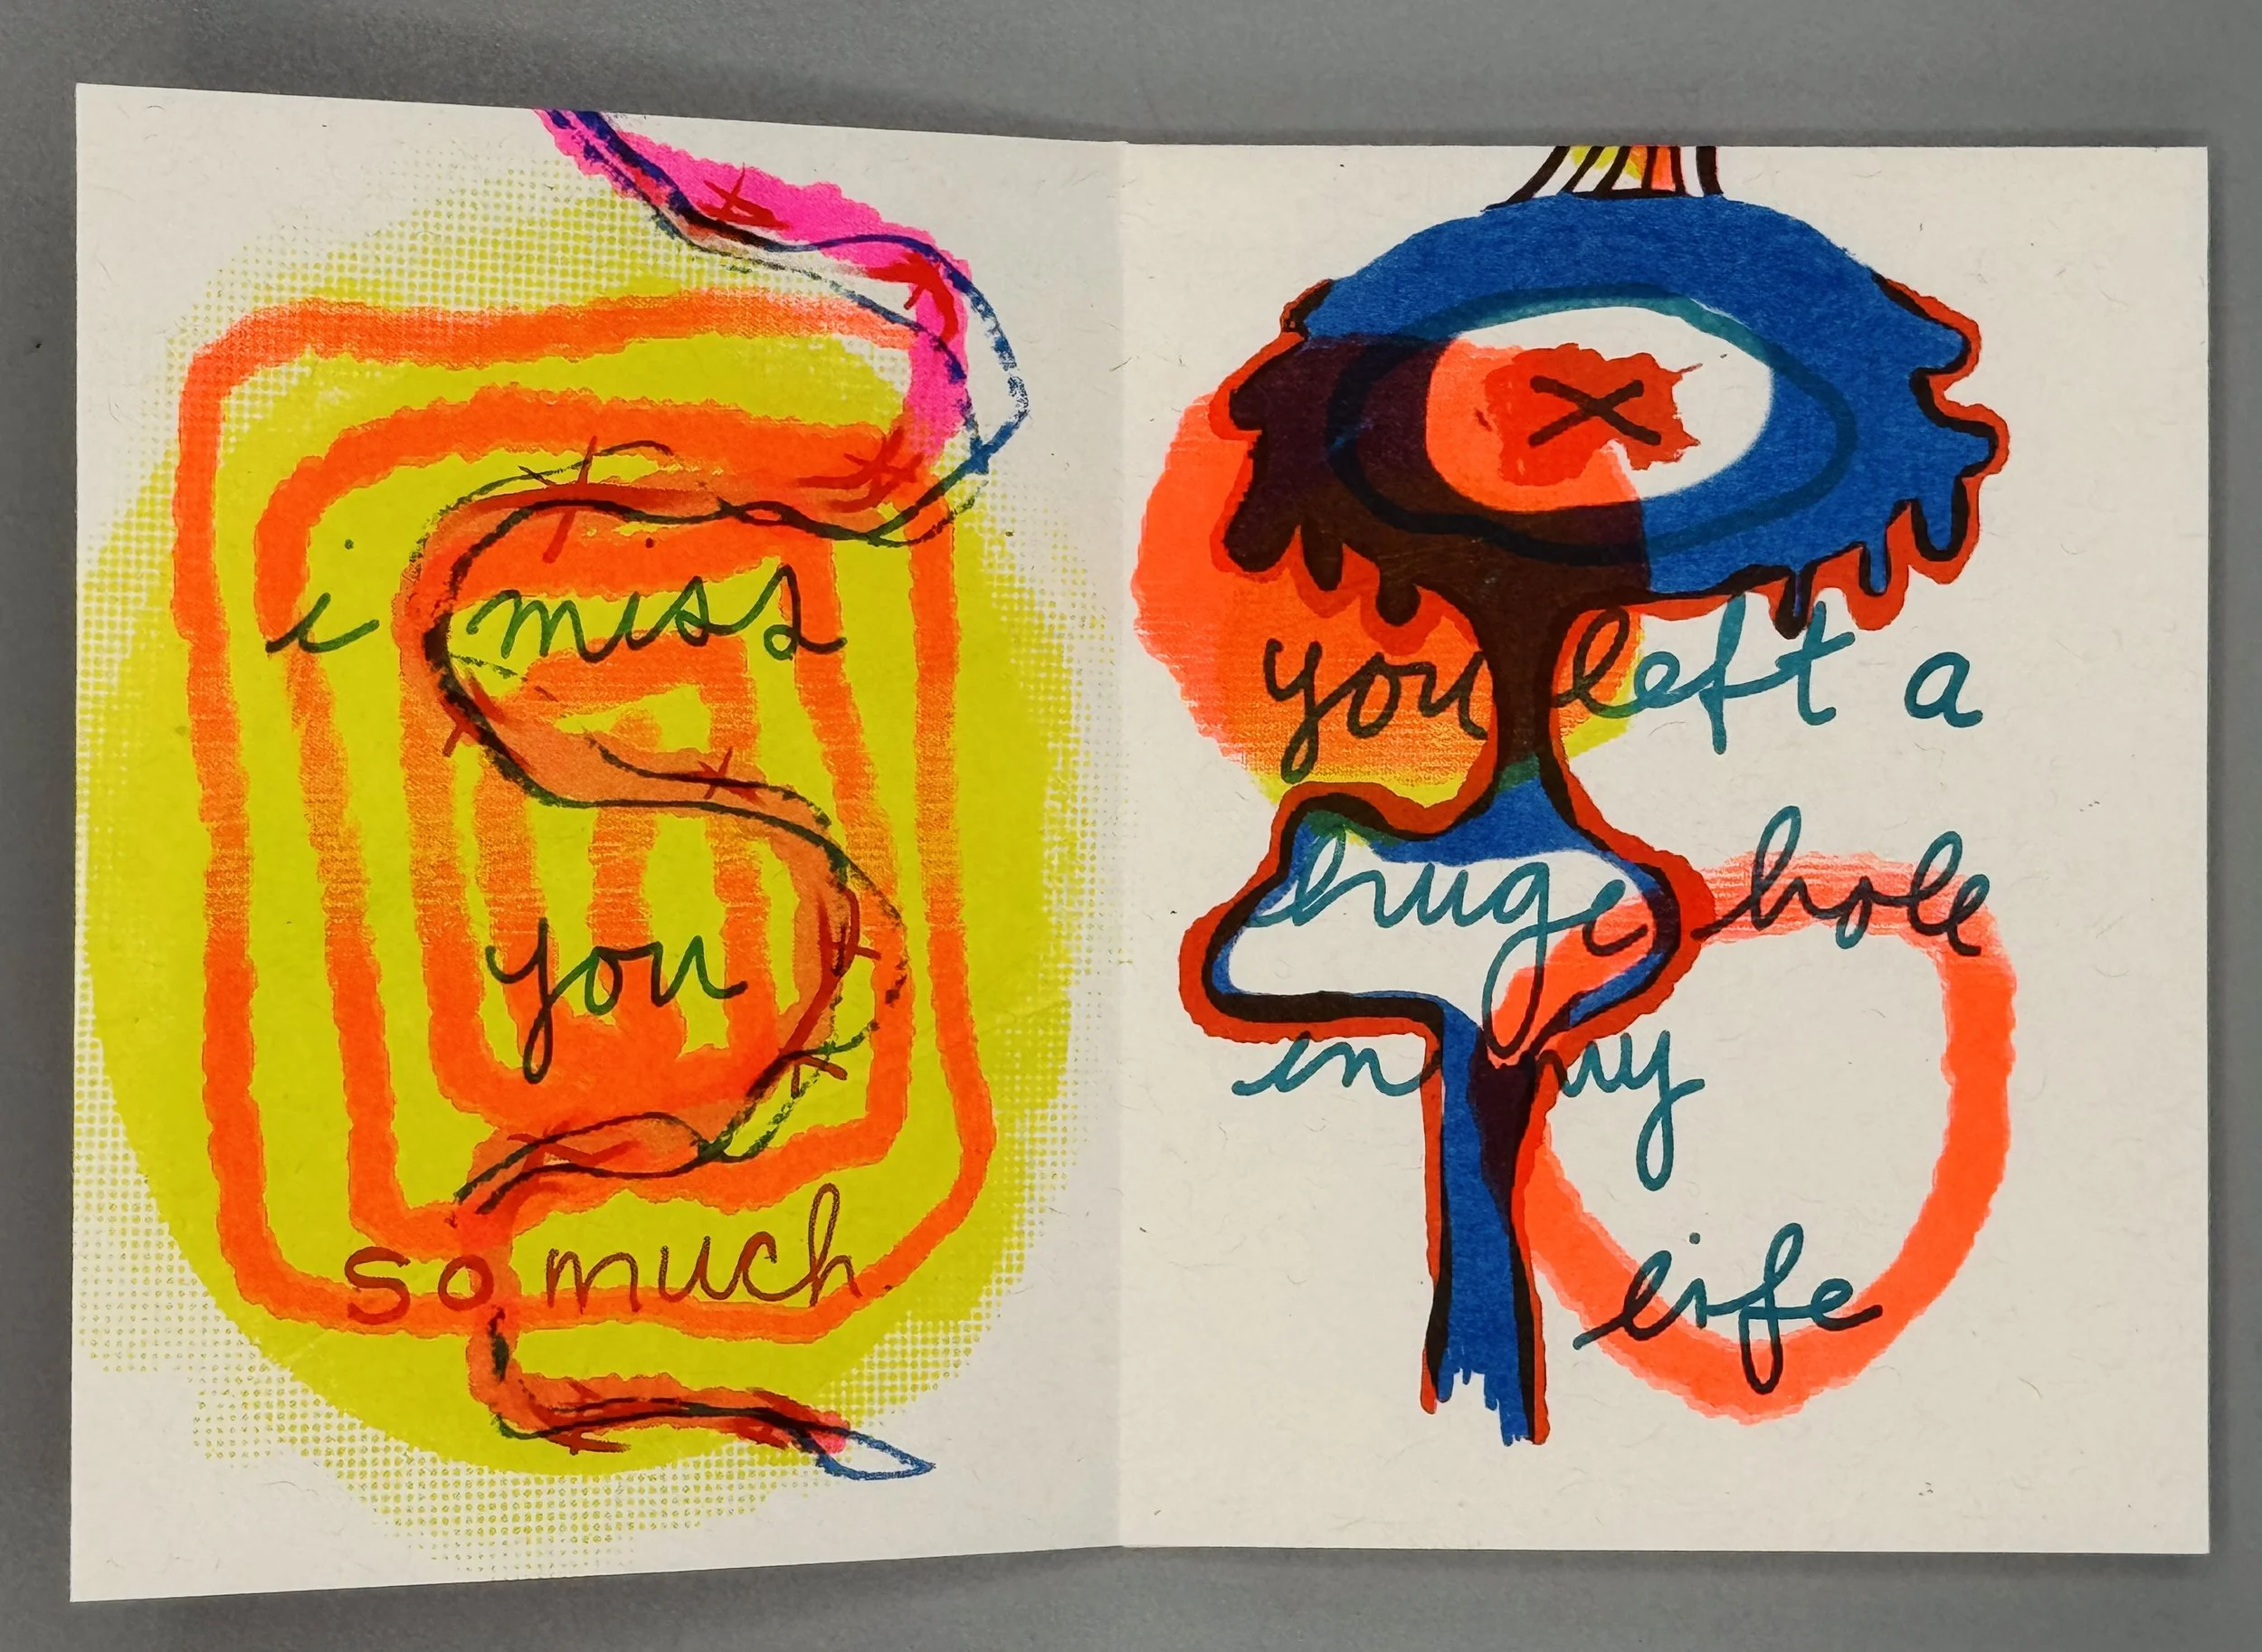 i miss
you
so much.
you left a
huge hole
in my
life